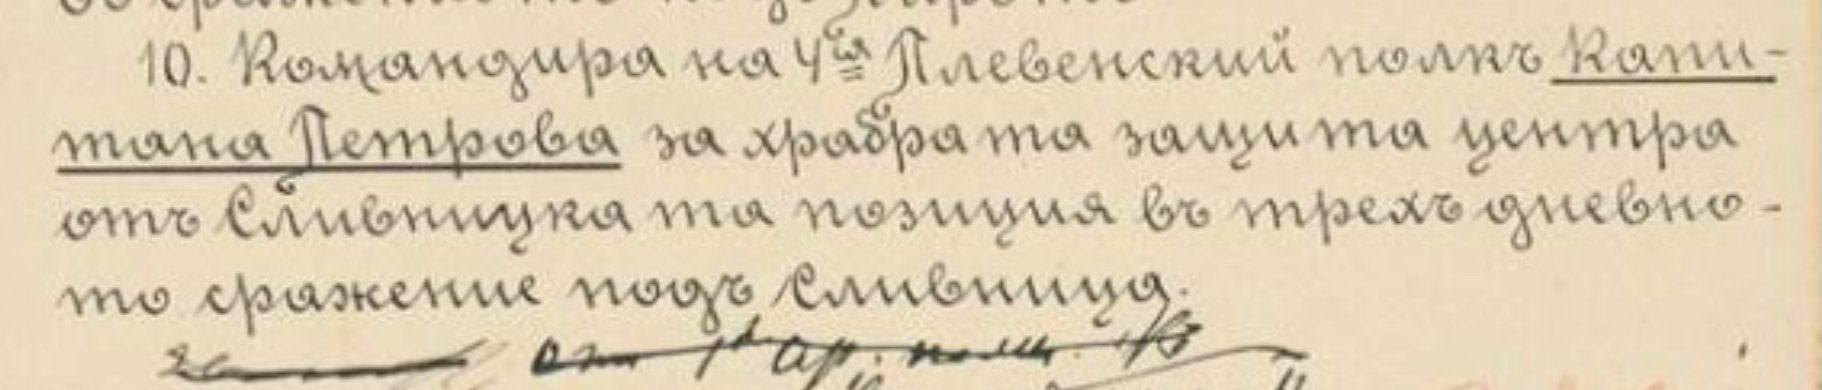 10. Командира на 4ий Плевенский полкъ Капи-
тана Петрова за храбрата защита центра
отъ Сливницката позиция въ трехъ дневно-
то сражение подъ Сливница.